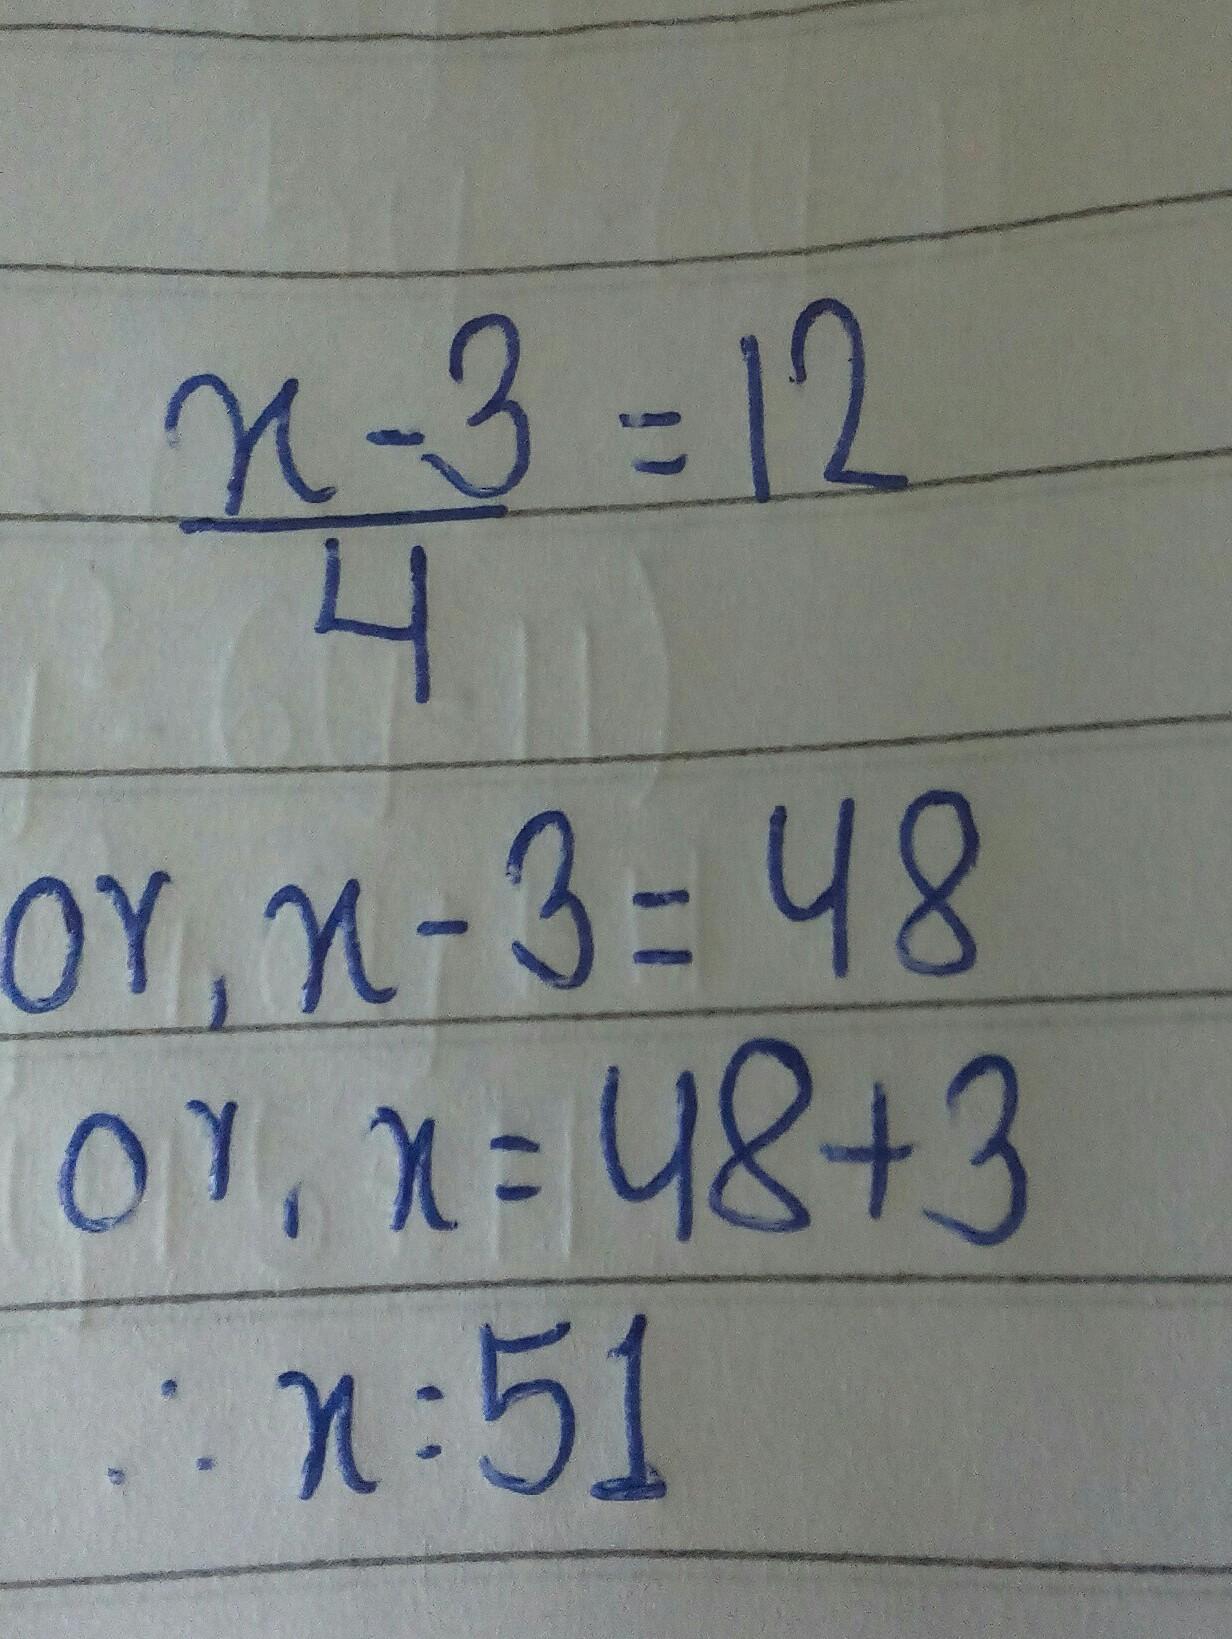 x-3/4 = 12
or, x - 3 = 48
or, x = 48+3
∴ x = 51